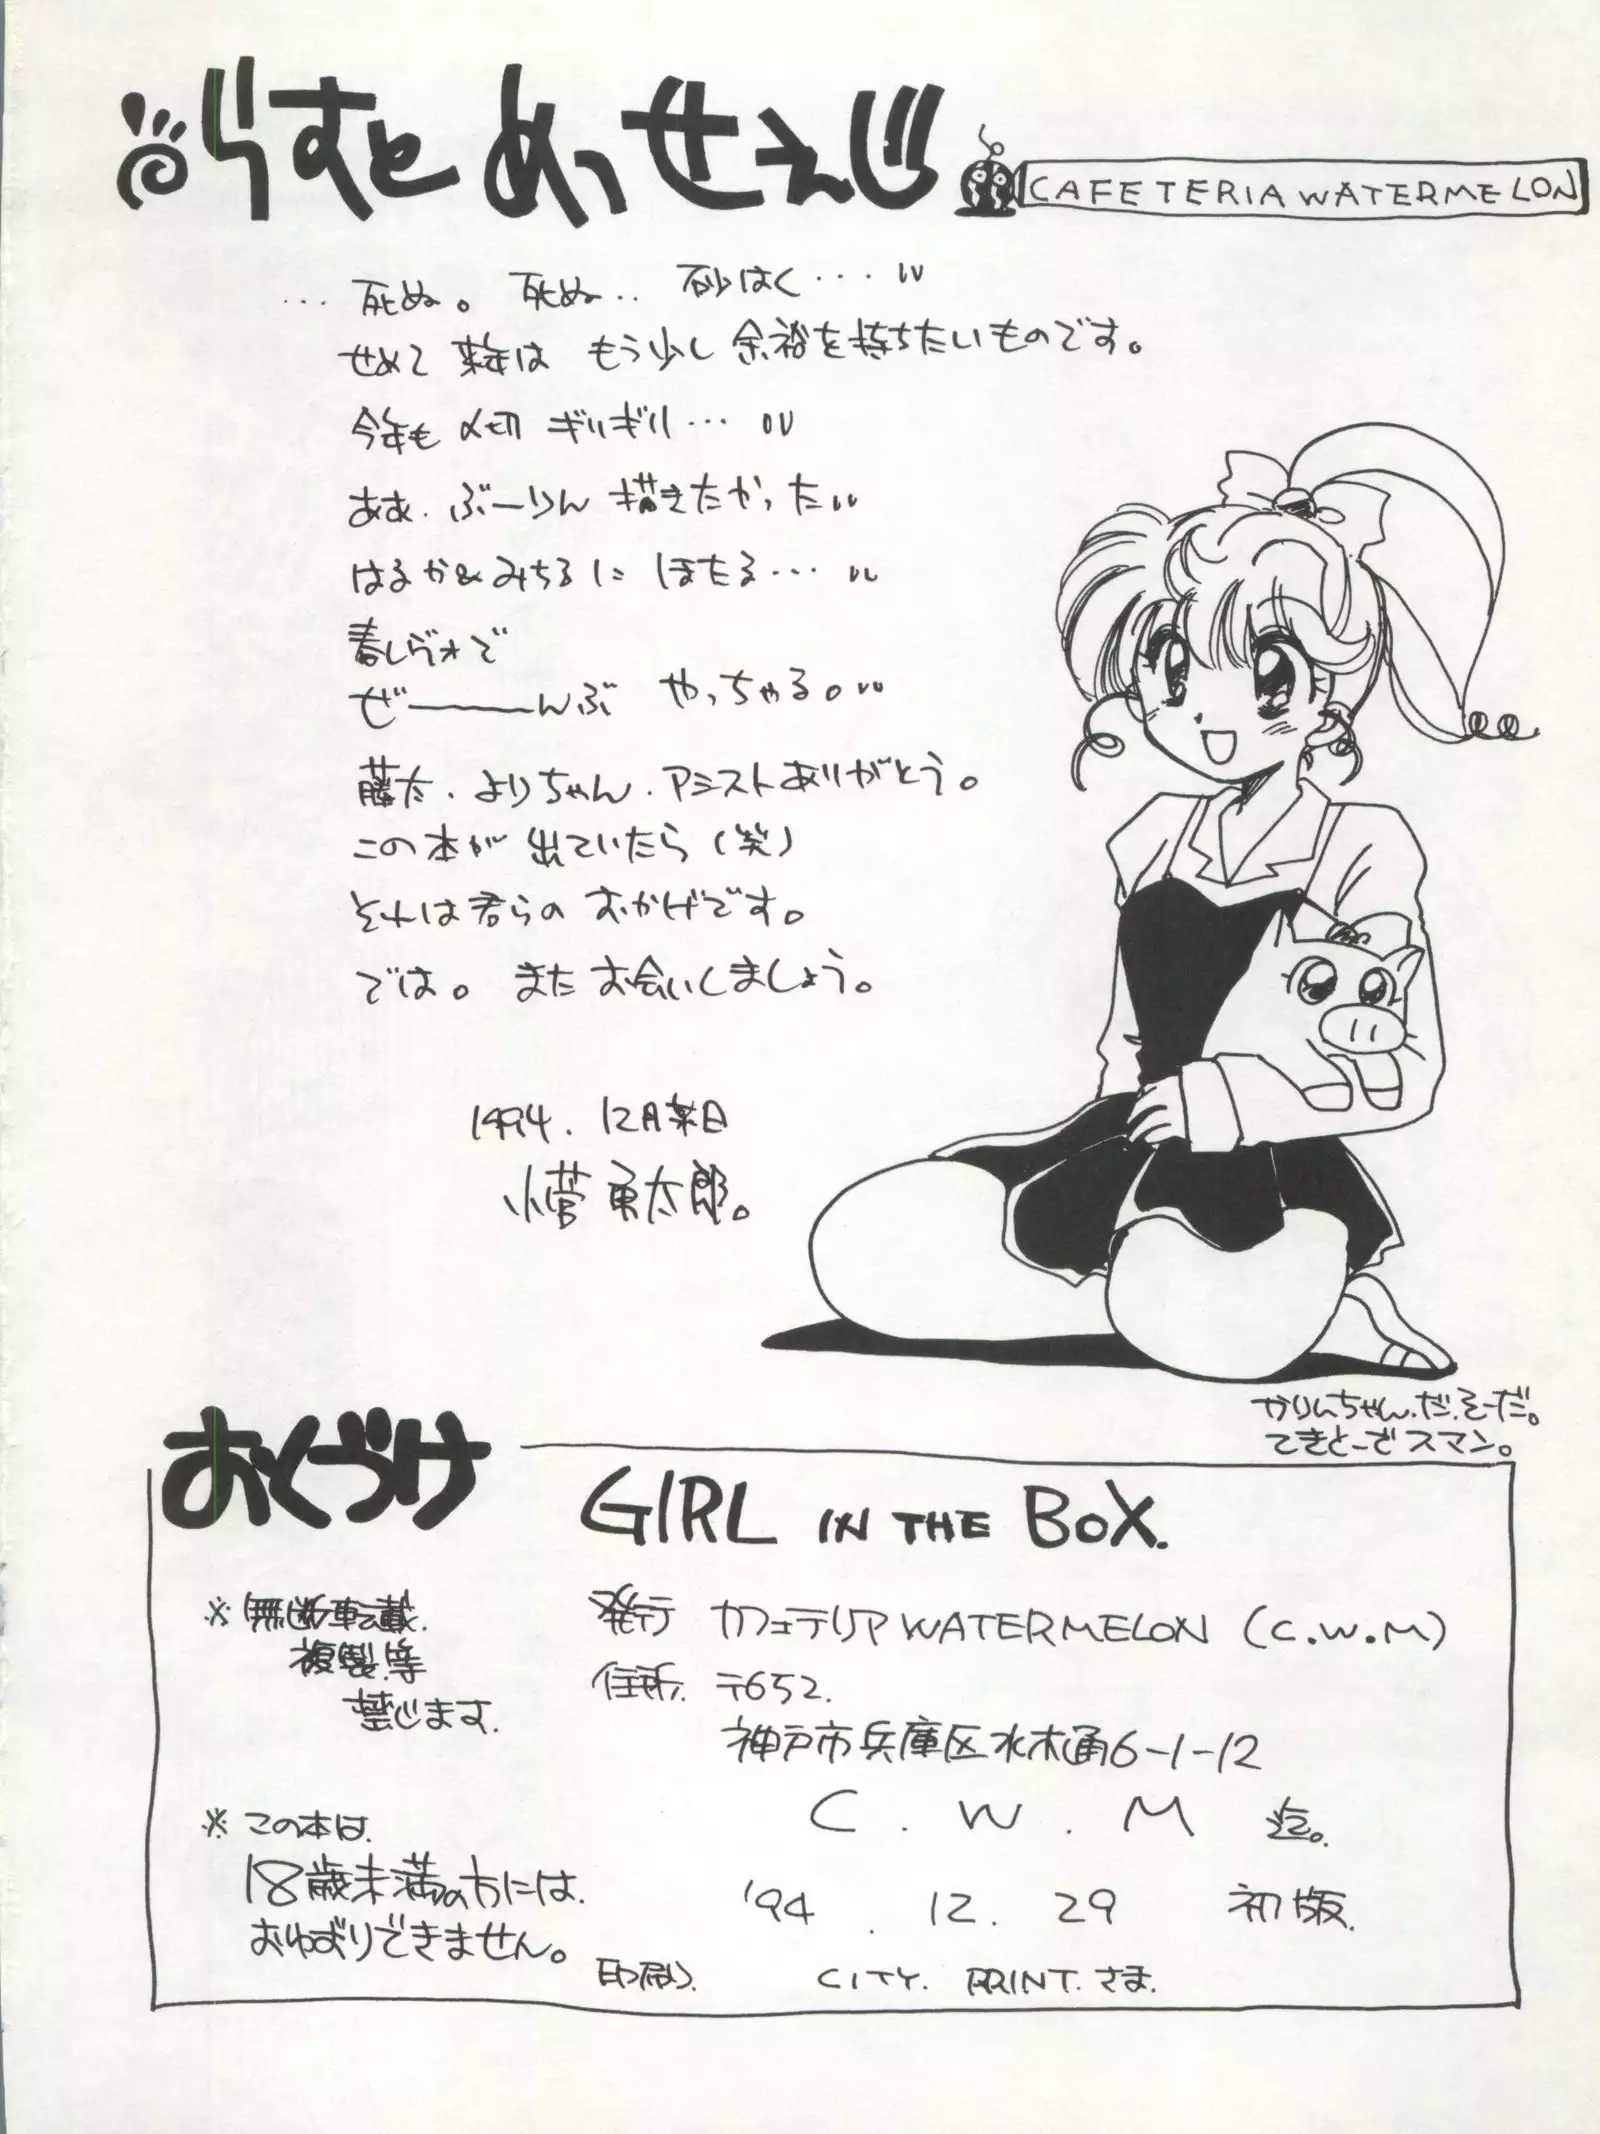 らすとめっせえじ
CAFETERIA WATERMELON
…死ぬ。死ぬ‥砂はく…
せめて来年はもう少し余裕を持ちたいものです。
今年も〆切ぎりぎり…
ああ、ぶーりん描きたかった
はるか&みちるにほたる…
春レヴォで
ぜーーんぶ やっちゃる。
藤太、よりちゃん、アシストありがとう。
この本が出ていたら(笑)
それは君らのおかげです。
では。またお会いしましょう。
1994. 12月某日
小菅勇太郎。
かりんちゃん.だ.そーだ。
てきとーでスマン。
おくづけ
GIRL IN THE BOX.
※無断転載.
複製.等
禁じます.
発行 カフェテリアWATERMELON (C.W.M)
住所. 〒652.
神戸市兵庫区水木通6-1-12
C.W.M 迄。
※この本は.
18歳未満の方には.
おゆずりできません。
'94.12.29 初版.
印刷. CITY. PRINT.さま.